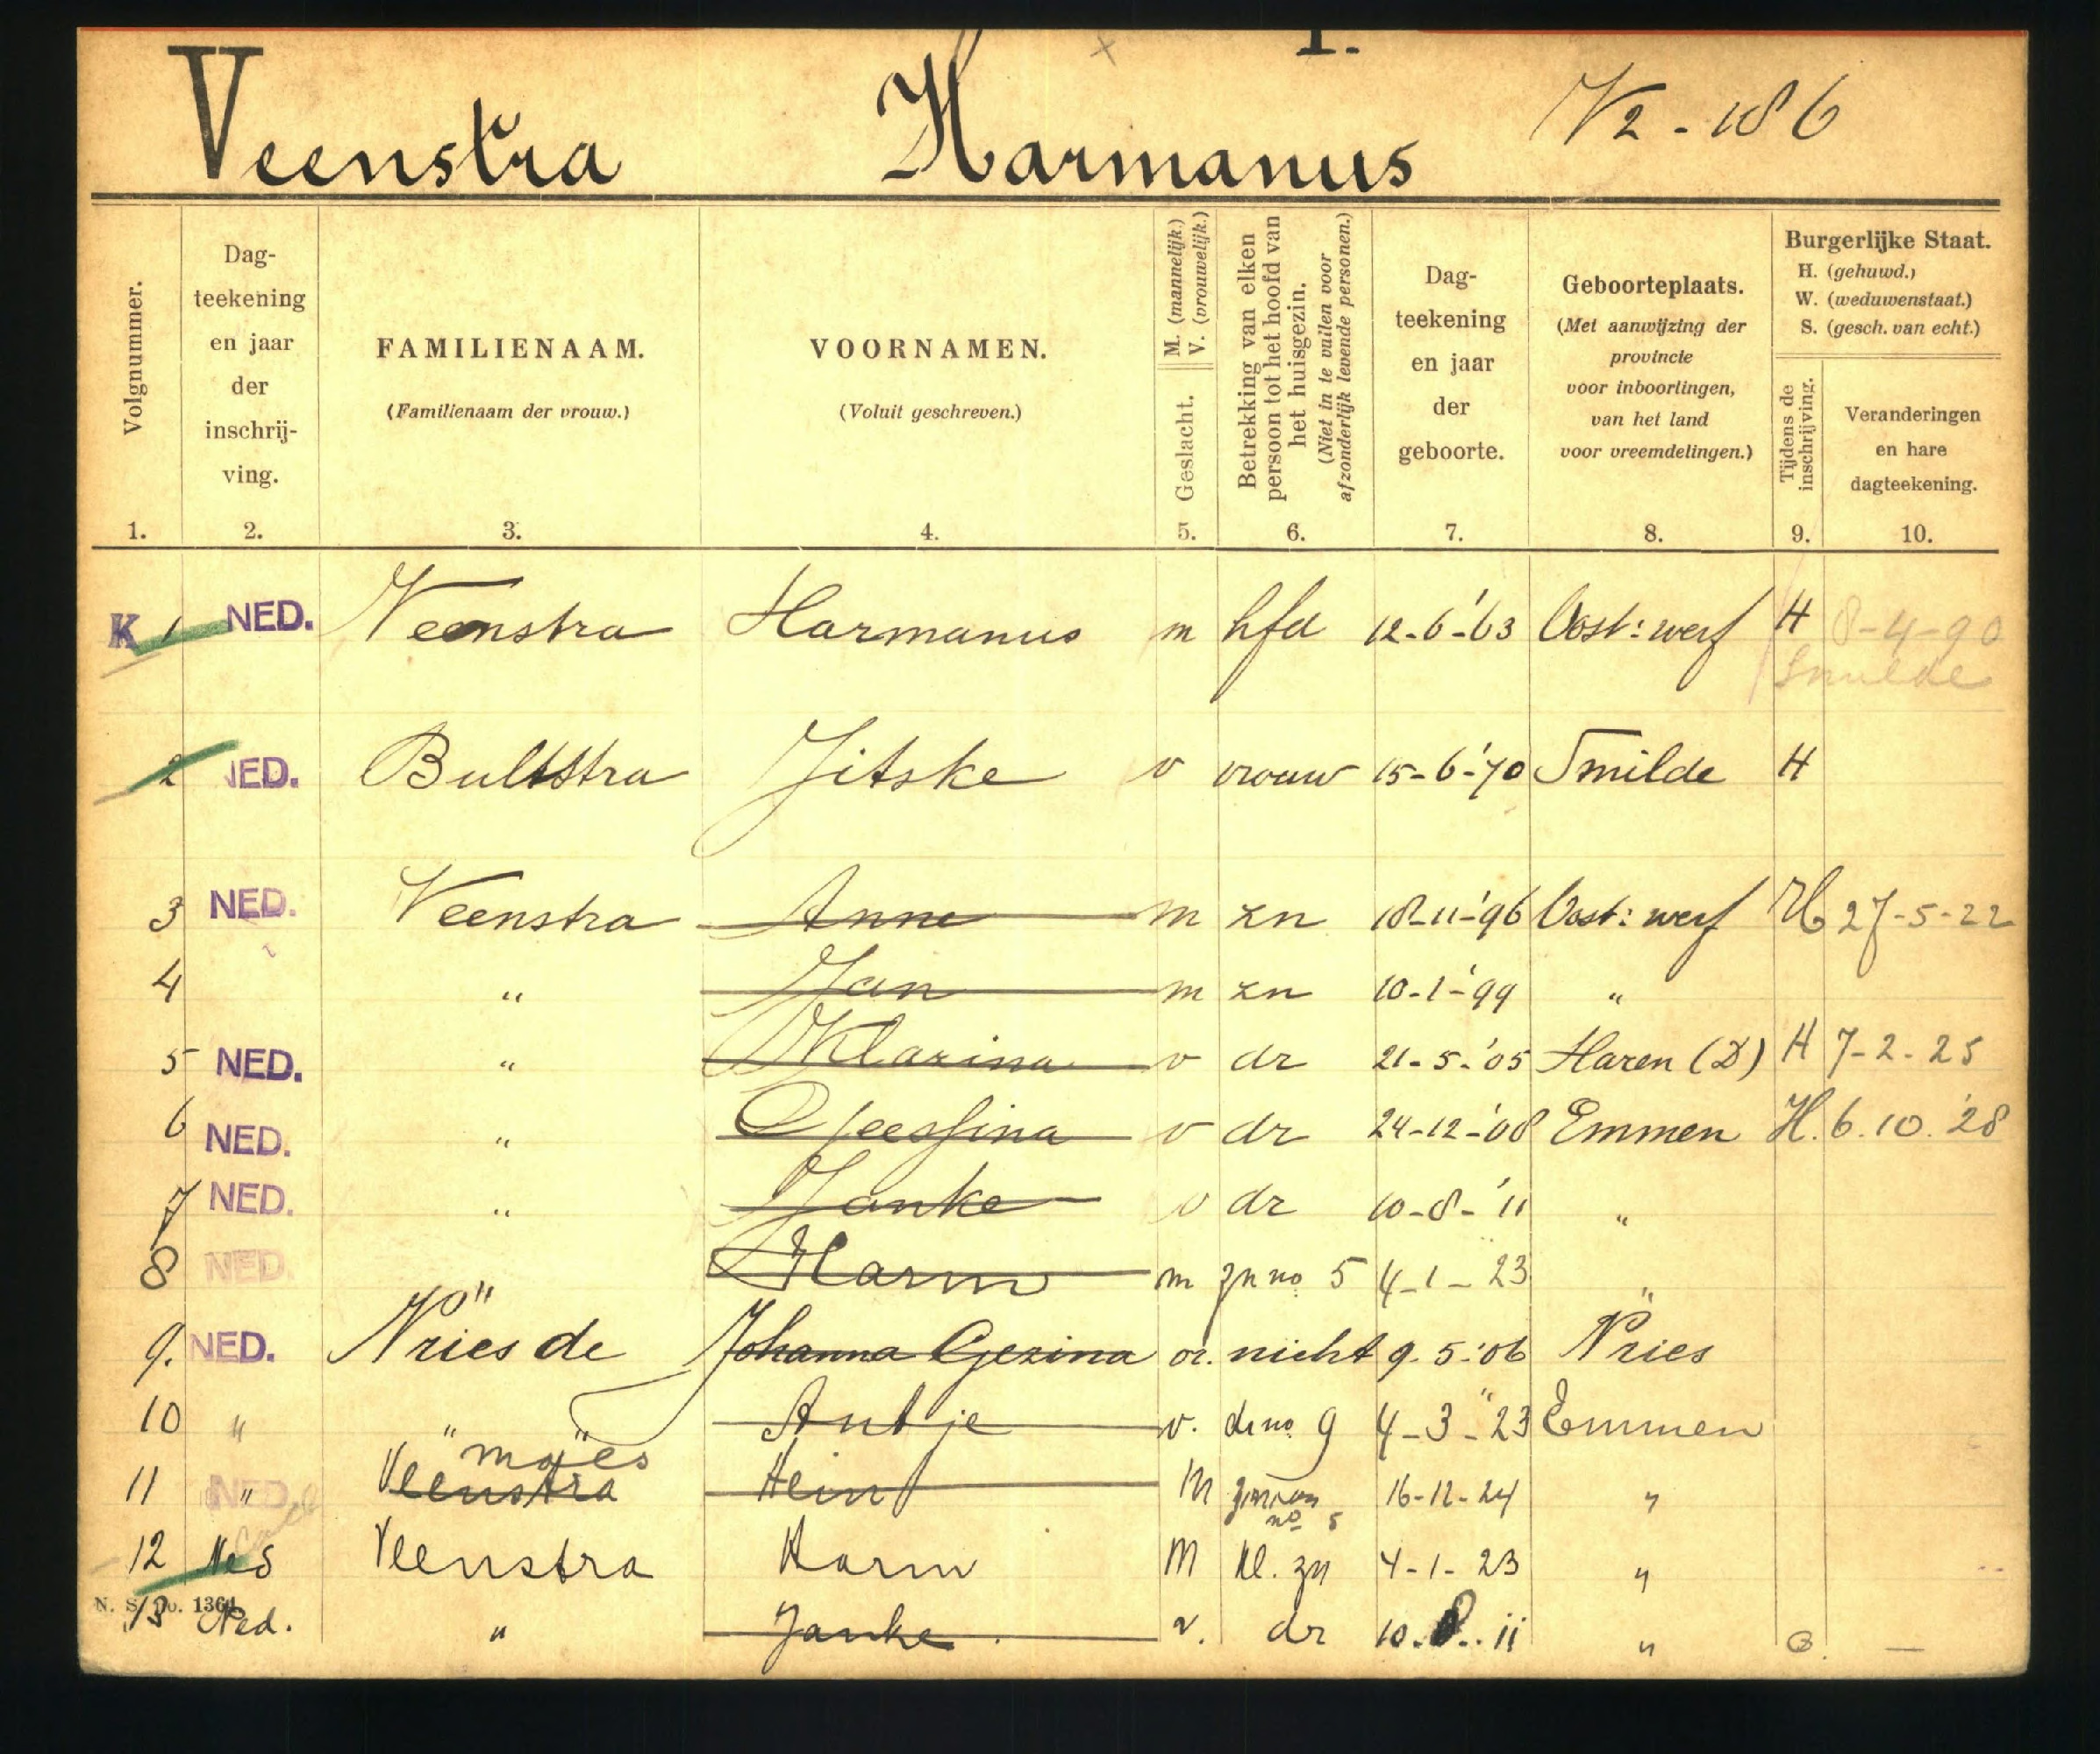 I.
Veenstra Harmanus V2-186
Volgnummer.
Dag-
teekening
en jaar
der
inschrij-
ving.
FAMILIENAAM.
(Familienaam der vrouw.)
VOORNAMEN.
(Voluit geschreven.)
M. (mannelijk.)
V. (vrouwelijk.)
Geslacht.
Betrekking van elken
persoon tot het hoofd van
het huisgezin.
(Niet in te vullen voor
afzonderlijk levende personen.)
Dag-
teekening
en jaar
der
geboorte.
Geboorteplaats.
(Met aanwijzing der
provincie
voor inboorlingen,
van het land
voor vreemdelingen.)
Burgerlijke Staat.
H. (gehuwd.)
W. (weduwenstaat.)
S. (gesch. van echt.)
Tijdens de
inschrijving.
Veranderingen
en hare
dagteekening.
1. 2. 3. 4. 5. 6. 7. 8. 9. 10.
K 1 NED. Veenstra Harmanus m hfd 12-6-'63 Oost:werf H 8-4-90
Smilde
2 NED. Bultstra Jitske v vrouw 15-6-'70 Smilde H
3 NED. Veenstra Anne m zn 18-11-'96 Oost:werf H 27-5-22
4 " Jan m zn 10-1-'99 "
5 NED. " Klazina v dr 21-5-'05 Haren (D) H 7-2-25
6 NED. " Geessina v dr 24-12-'08 Emmen H. 6.10.'28
7 NED. " Janke v dr 10-8-'11 "
8 NED. " Harm m zn no 5 4-1-23 "
9. NED. Vries de Johanna Gezina v. nicht 9.5.'06 Vries
10 " " " Antje v. dr no 9 4-3-23 Emmen
11 NED. " Veenstra Hein M zn van no 5 16-12-24 "
12 Ned Veenstra Harm M kl. zn 4-1-23 "
13 Ned. " Janke v. dr 10.8.11 "
N. S. No. 1364